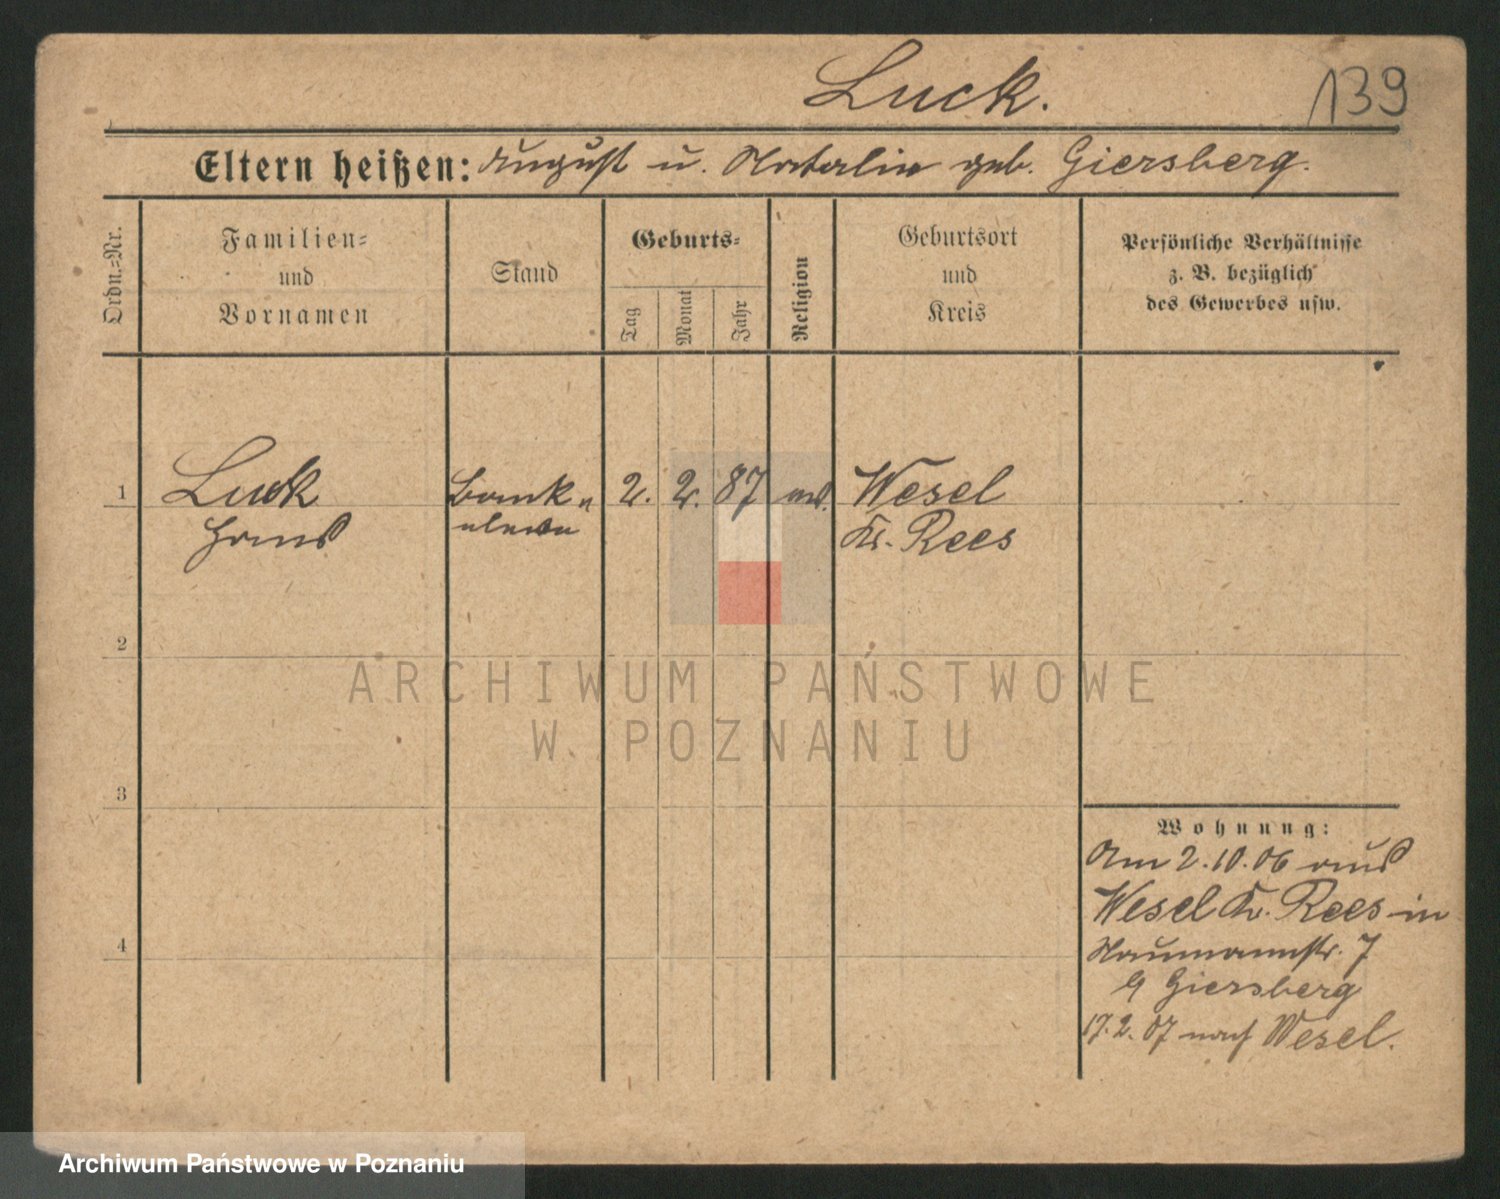 Luck.
139
Eltern heißen: August u. Natalie geb. Giersberg.
Ordn.=Nr.
Familien=
und
Vornamen
Stand
Geburts=
Tag
Monat
Jahr
Religion
Geburtsort
und
Kreis
Persönliche Verhältnisse
z. B. bezüglich
des Gewerbes usw.
1
Luck
Hans
Bank=
eleve
2. 2. 87
Wesel
Kr. Rees
2
ARCHIWUM PAŃSTWOWE
W POZNANIU
3
4
Wohnung:
Am 2.10.06 aus
Wesel Kr. Rees in
Naumannstr. 7
Giersberg
17.2.07 nach Wesel.
Archiwum Państwowe w Poznaniu